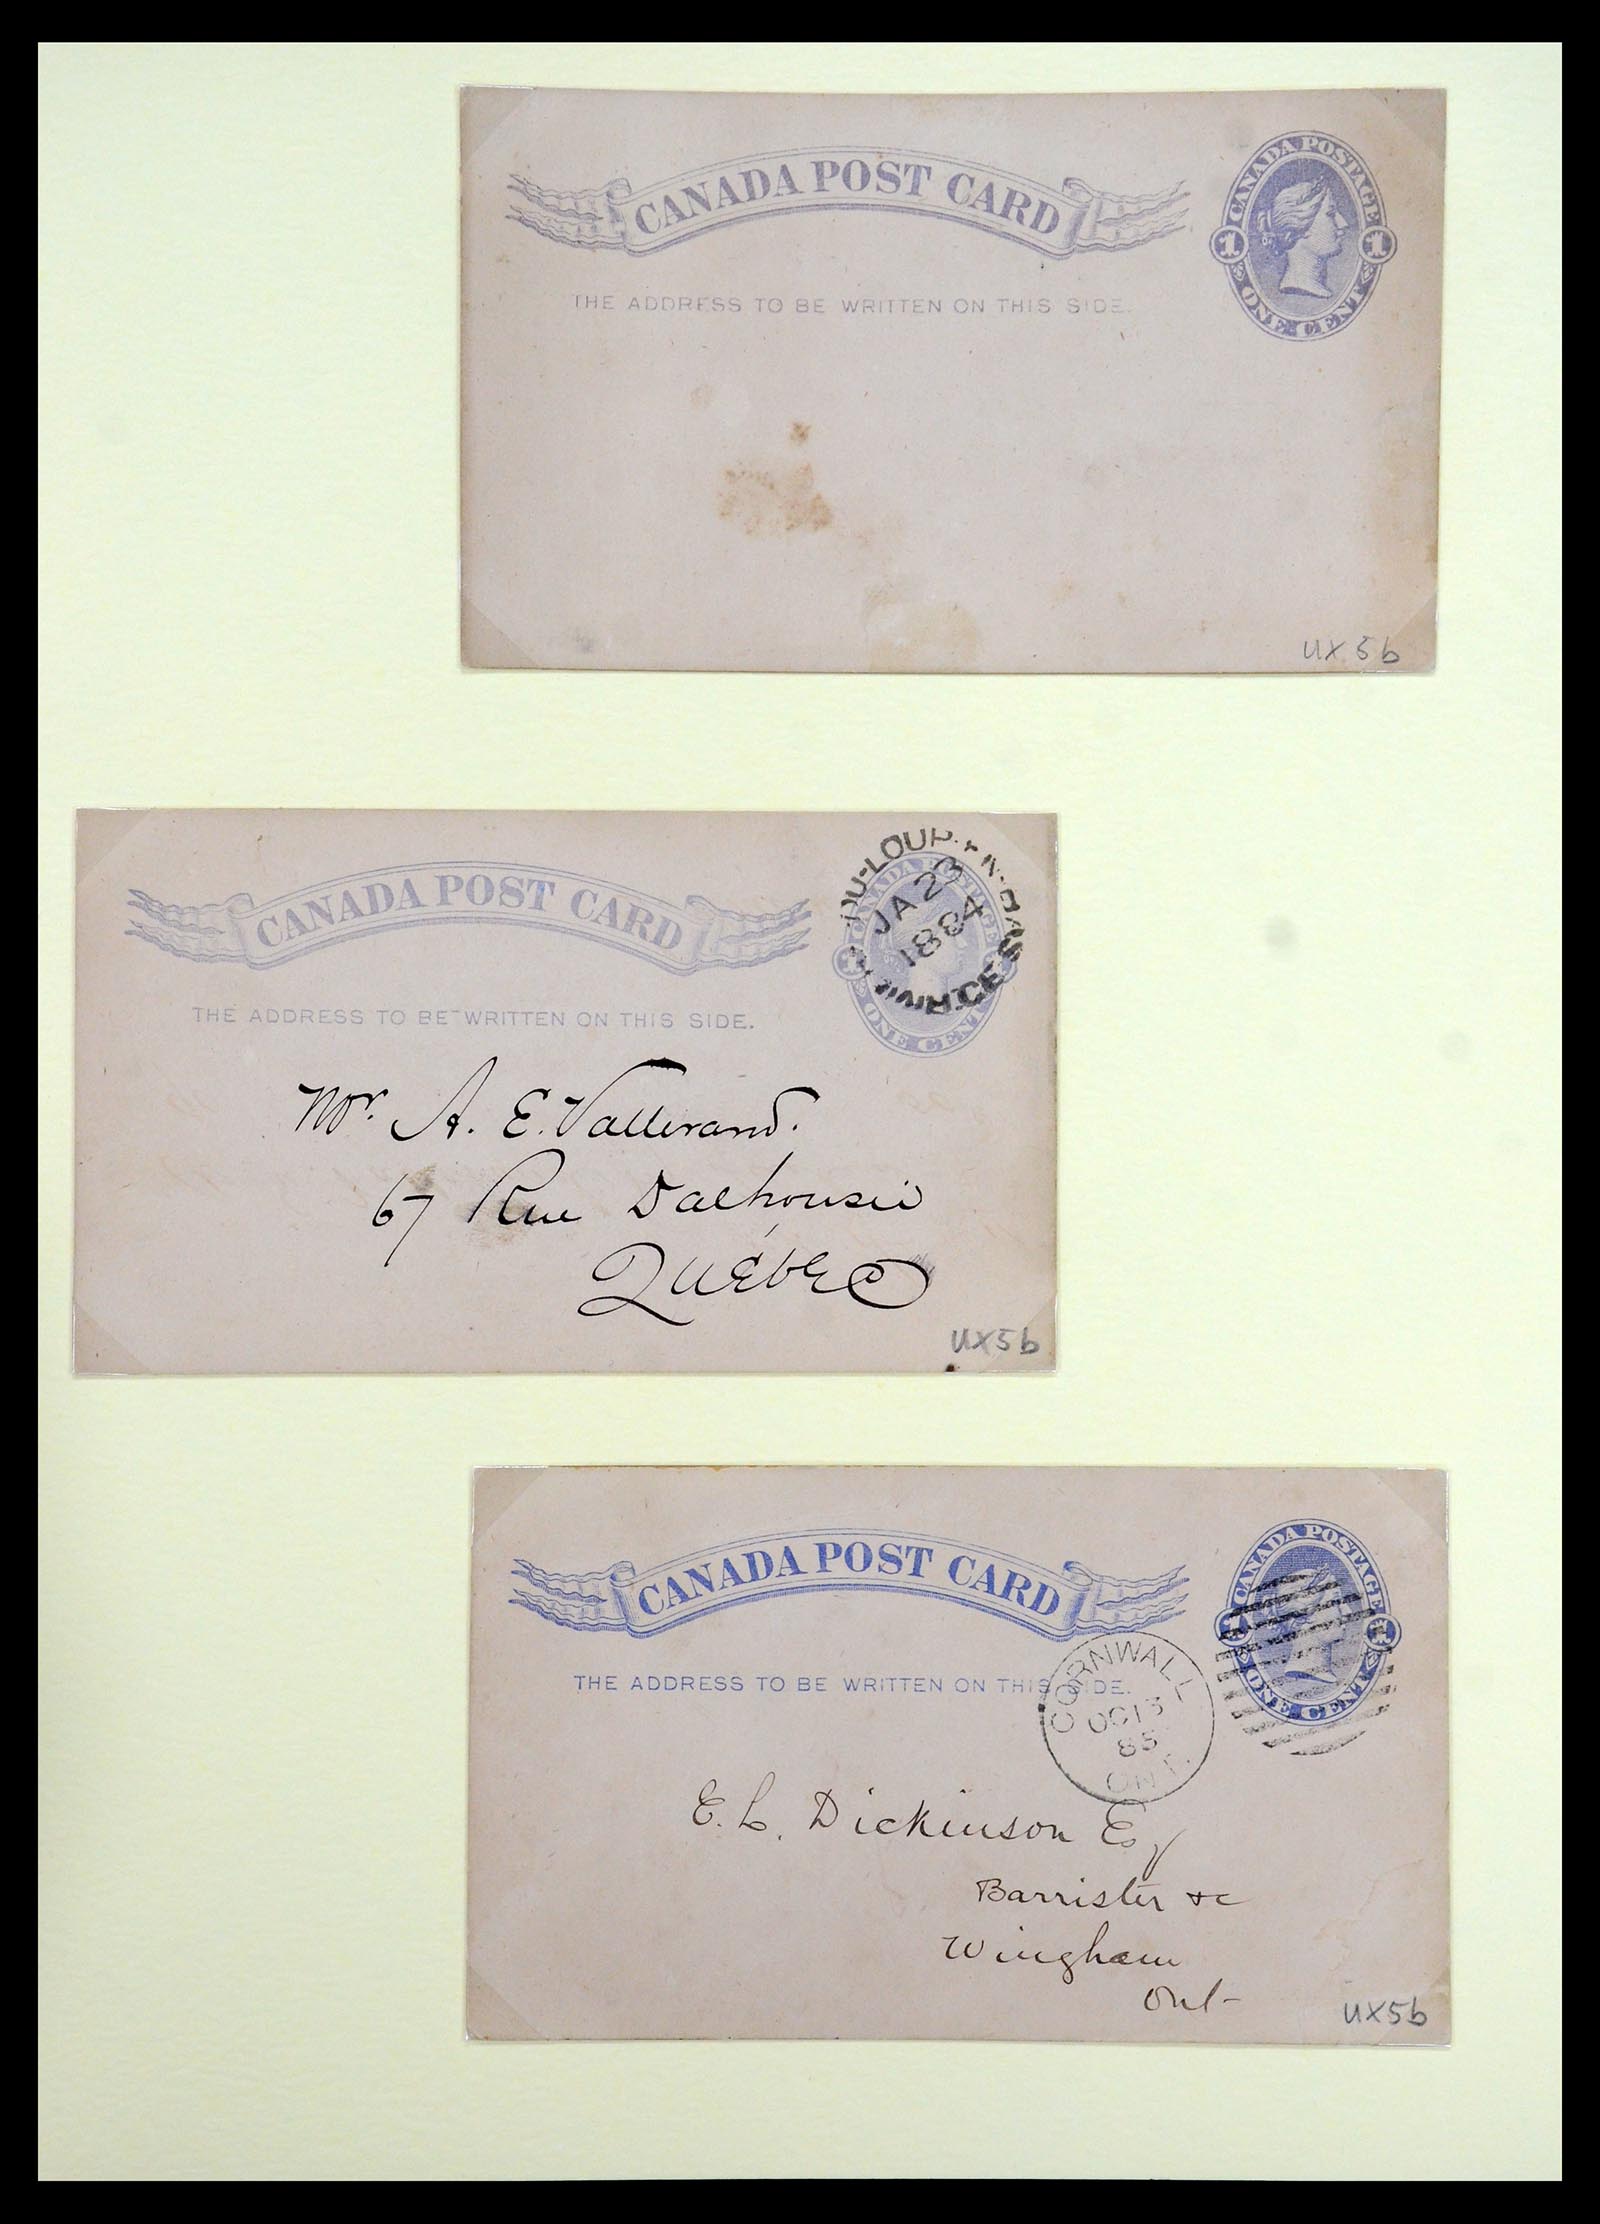 CANADA POST CARD
CANADA POSTAGE
1 1
ONE CENT
THE ADDRESS TO BE WRITTEN ON THIS SIDE.
UX 5b
CANADA POST CARD
CANADA POSTAGE
1
ONE CENT
DU-LOUP
JA 23
1884
THE ADDRESS TO BE WRITTEN ON THIS SIDE.
Mr. A. E. Vallerand.
67 Rue Dalhousie
QUÉBEC
UX5b
CANADA POST CARD
CANADA POSTAGE
1 1
ONE CENT
THE ADDRESS TO BE WRITTEN ON THIS SIDE.
CORNWALL
OC 13
85
ONT.
E. L. Dickinson Esq
Barrister &c
Wingham
Ont-
UX5b